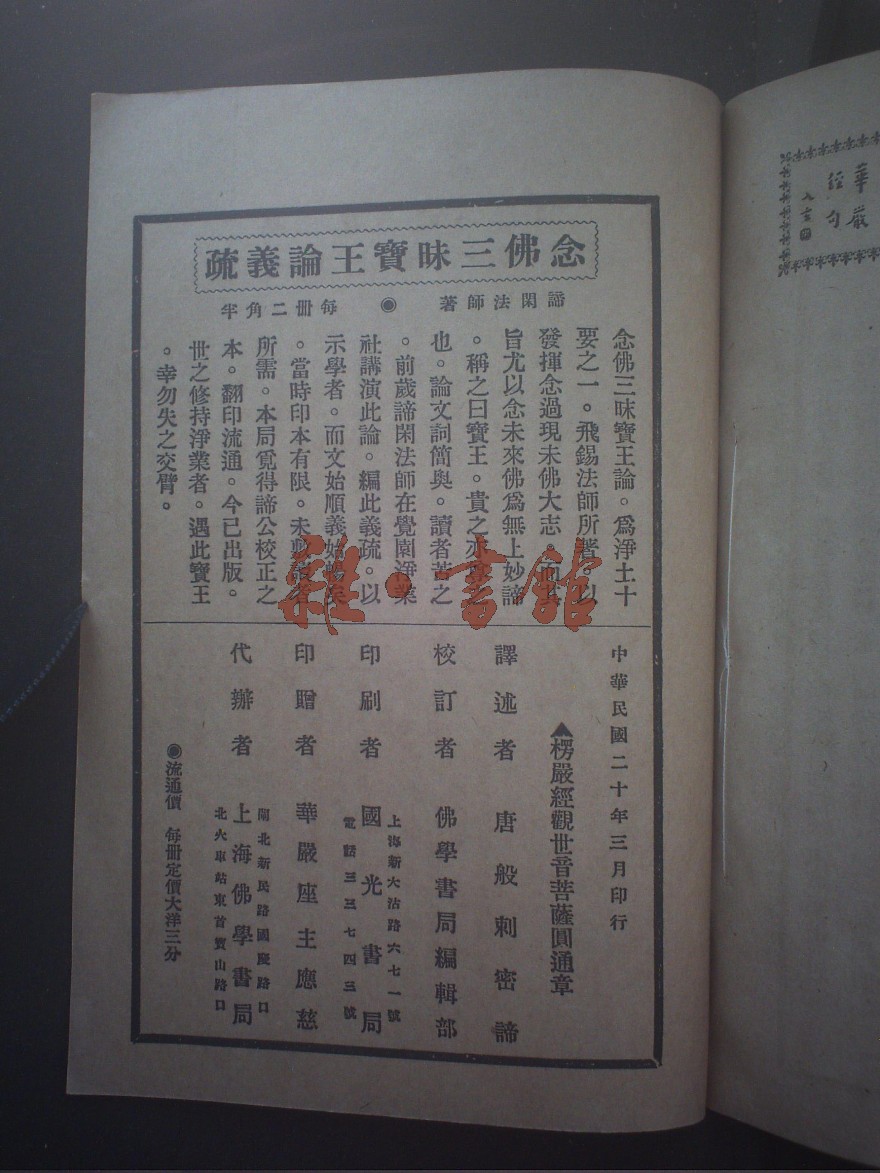 念佛三昧寶王論義疏
諦閑法師著 ◉ 每冊二角半
念佛三昧寶王論。爲淨土十
要之一。飛錫法師所著。以
發揮念過現未佛大志。而其
旨尤以念未來佛爲無上妙諦
。稱之曰寶王。貴之亦
也。論文詞簡奧。讀者苦之
。前歲諦閑法師在覺園淨業
社講演此論。編此義疏。以
示學者。而文始順義始暢矣
。當時印本有限。未敷讀者
所需。本局覓得諦公校正之
本。翻印流通。今已出版。
世之修持淨業者。遇此寶王
。幸勿失之交臂。
中華民國二十年三月印行
▲楞嚴經觀世音菩薩圓通章
譯述者 唐般剌密諦
校訂者 佛學書局編輯部
上海新大沽路六七一號
印刷者 國光書局
電話三三七四三號
印贈者 華嚴座主應慈
閘北新民路國慶路口
代辦者 上海佛學書局
北火車站東首寶山路口
◉流通價 每冊定價大洋三分
華嚴
經句
雜·書館